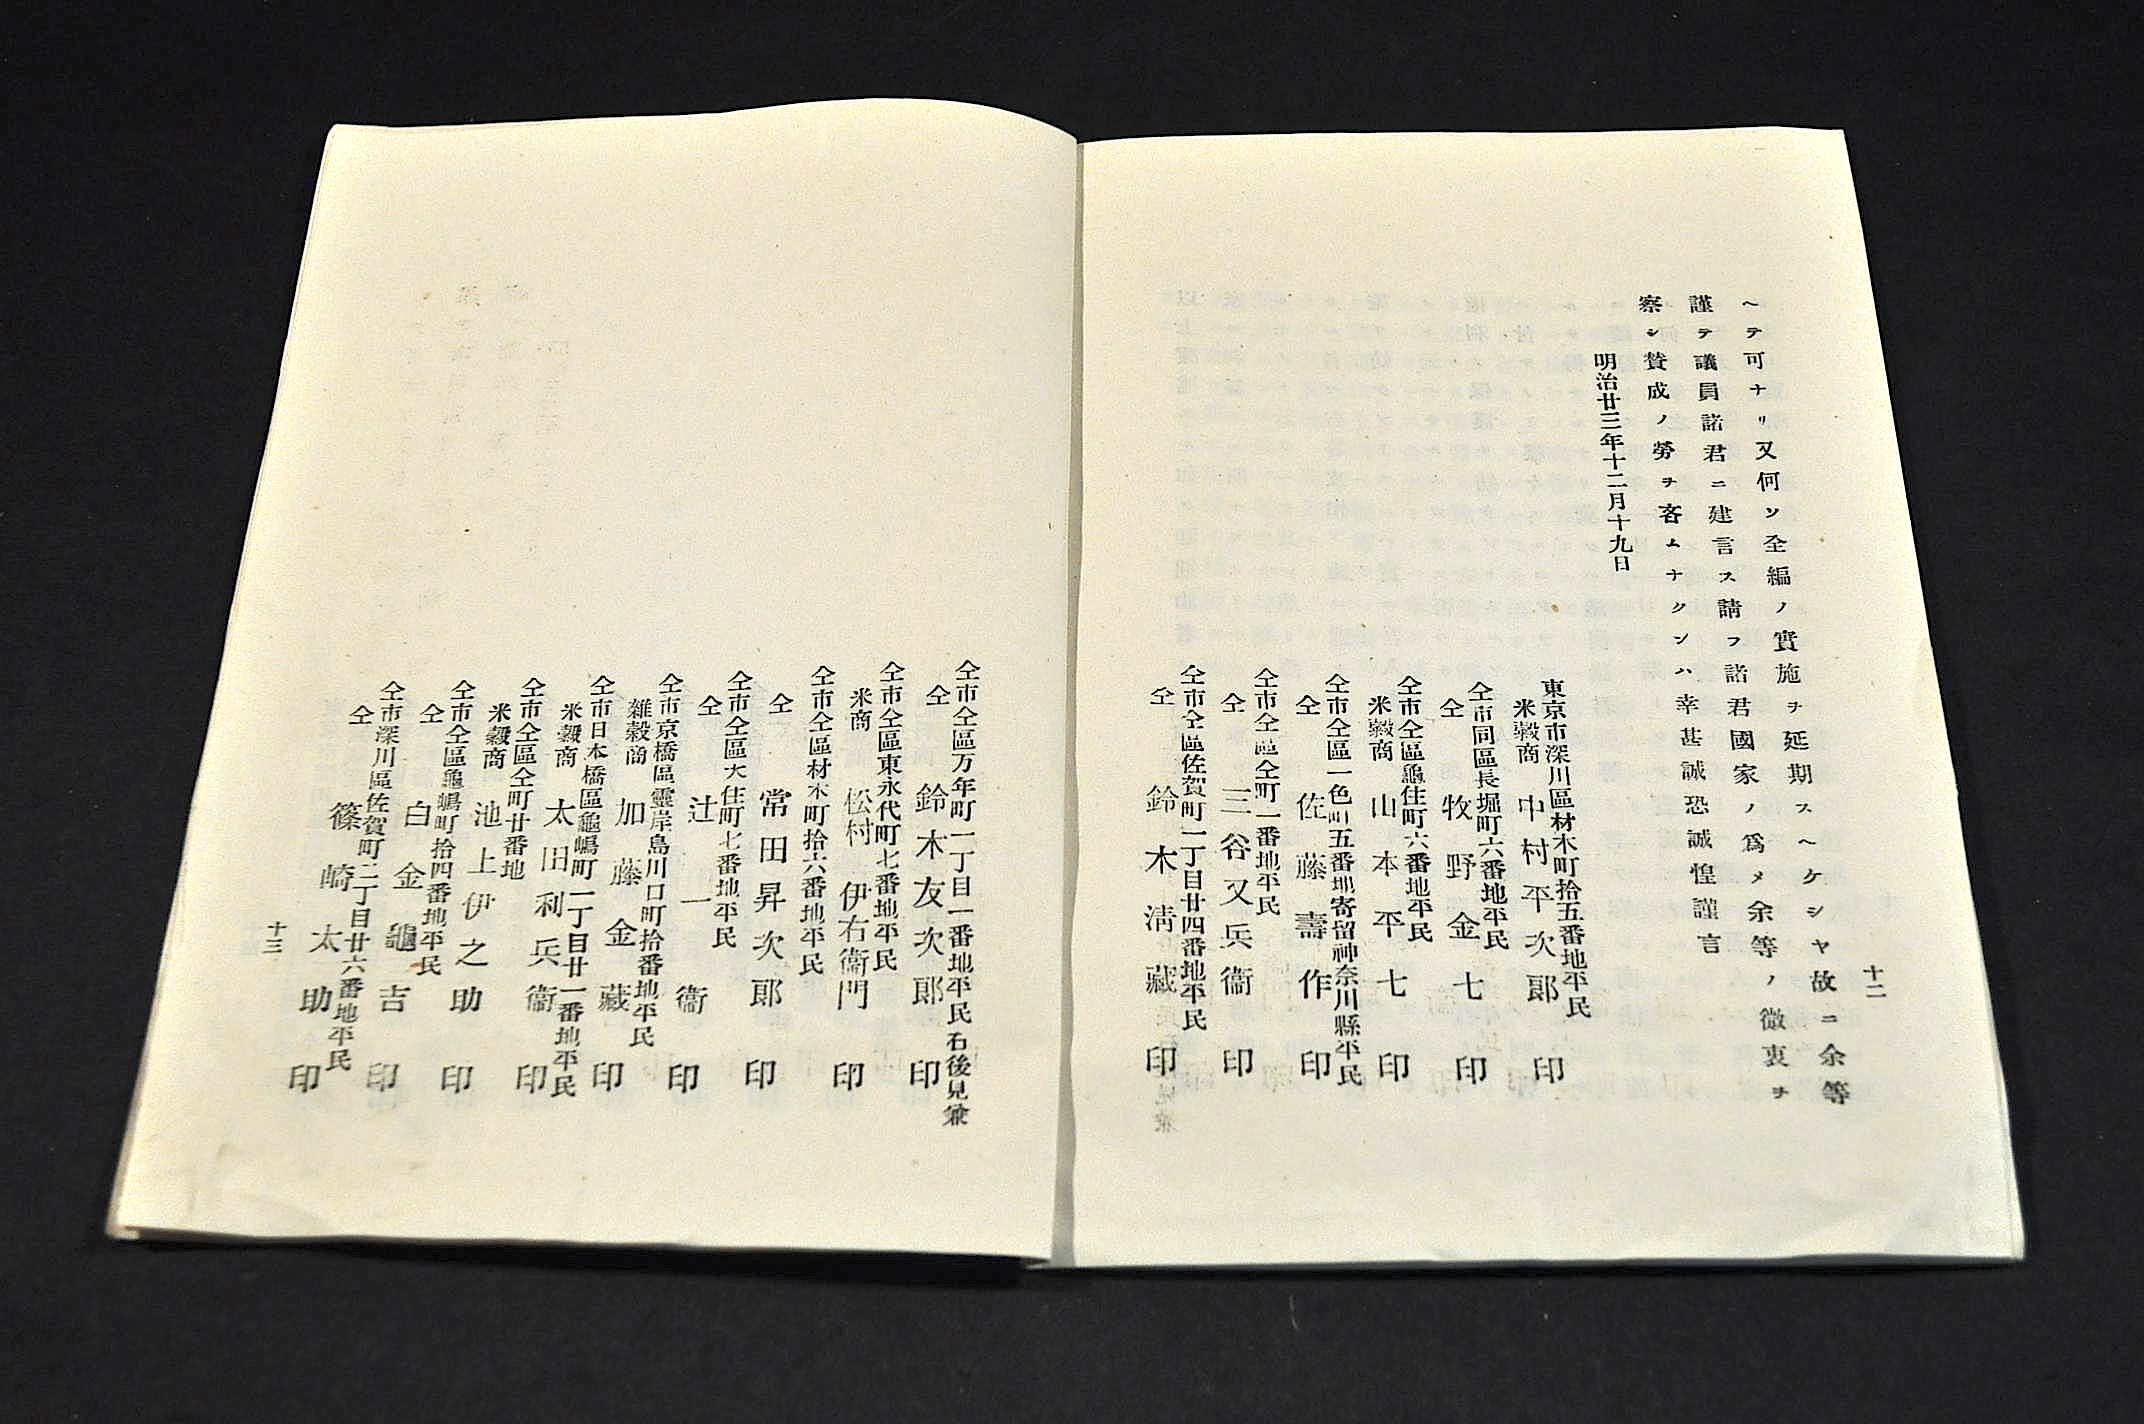 十二
ヘテ可ナリ又何ソ全編ノ實施ヲ延期スヘケンヤ故ニ余等
謹テ議員諸君ニ建言ス請フ諸君國家ノ爲メ余等ノ微衷ヲ
察シ賛成ノ勞ヲ吝ムナクンハ幸甚誠恐誠惶謹言
明治廿三年十二月十九日
東京市深川區材木町拾五番地平民
米穀商 中村平次郎 印
仝市同區長堀町六番地平民
仝 牧野金七 印
仝市仝區龜住町六番地平民
米穀商 山本平七 印
仝市仝區一色町五番地寄留神奈川縣平民
仝 佐藤壽作 印
仝市仝區仝町一番地平民
仝 三谷又兵衞 印
仝市仝區佐賀町一丁目廿四番地平民
仝 鈴木淸藏 印
仝市仝區万年町一丁目一番地平民 右後見兼
仝 鈴木友次郎 印
仝市仝區東永代町七番地平民
米商 松村伊右衞門 印
仝市仝區材木町拾六番地平民
仝 常田昇次郎 印
仝市仝區大住町七番地平民
仝 辻一衞 印
仝市京橋區靈岸島川口町拾番地平民
雜穀商 加藤金藏 印
仝市日本橋區龜嶋町一丁目廿一番地平民
米穀商 太田利兵衞 印
仝市仝區仝町廿番地
米穀商 池上伊之助 印
仝市仝區龜嶋町拾四番地平民
仝 白金龜吉 印
仝市深川區佐賀町二丁目廿六番地平民
仝 篠崎太助 印
十三